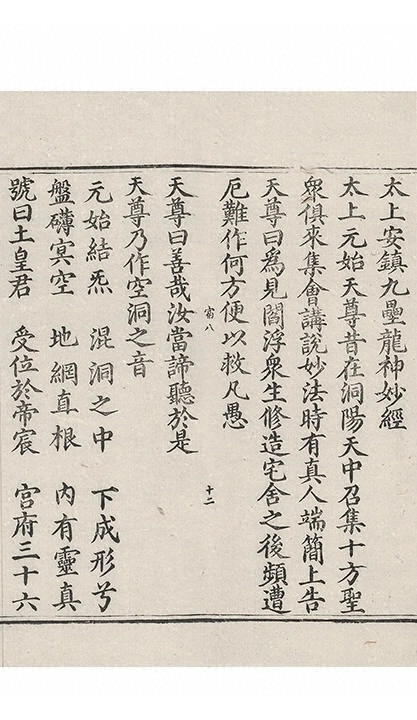 太上安鎮九壘龍神妙經
太上元始天尊昔在洞陽天中召集十方聖
衆俱來集會講説妙法時有真人端簡上告
天尊曰爲見閻浮衆生修造宅舍之後頻遭
厄難作何方便以救凡愚
甯八 十二
天尊曰善哉汝當諦聽於是
天尊乃作空洞之音
元始結炁 混洞之中 下成形兮
盤礴冥空 地網真根 内有靈真
號曰土皇君 受位於帝宸 宫府三十六